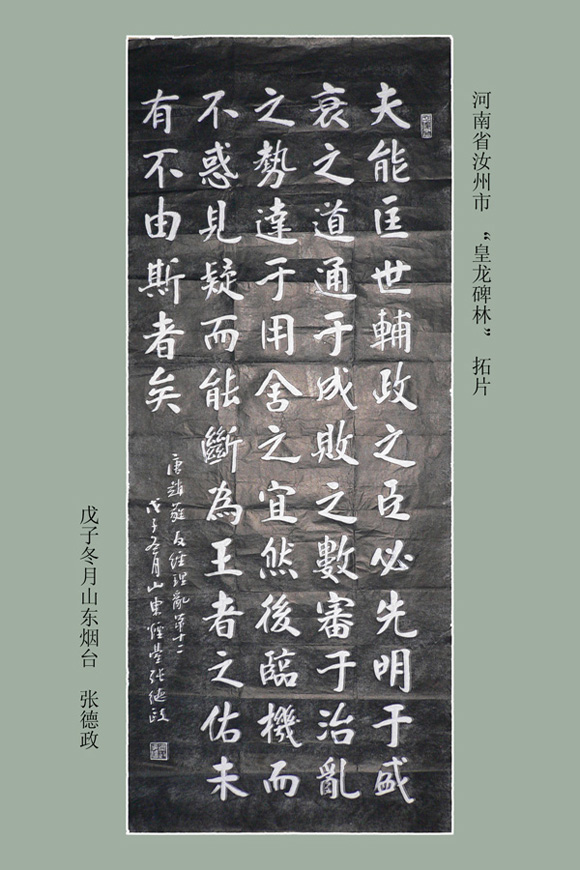 河南省汝州市 “皇龙碑林” 拓片
夫能匡世輔政之臣必先明于盛
衰之道通于成敗之數審于治亂
之勢達于用舍之宜然後臨機而
不惑見疑而能斷為王者之佑未
有不由斯者矣
唐趙蕤反經理亂第十二
戊子冬月山東煙臺張德政
戊子冬月山东烟台 张德政